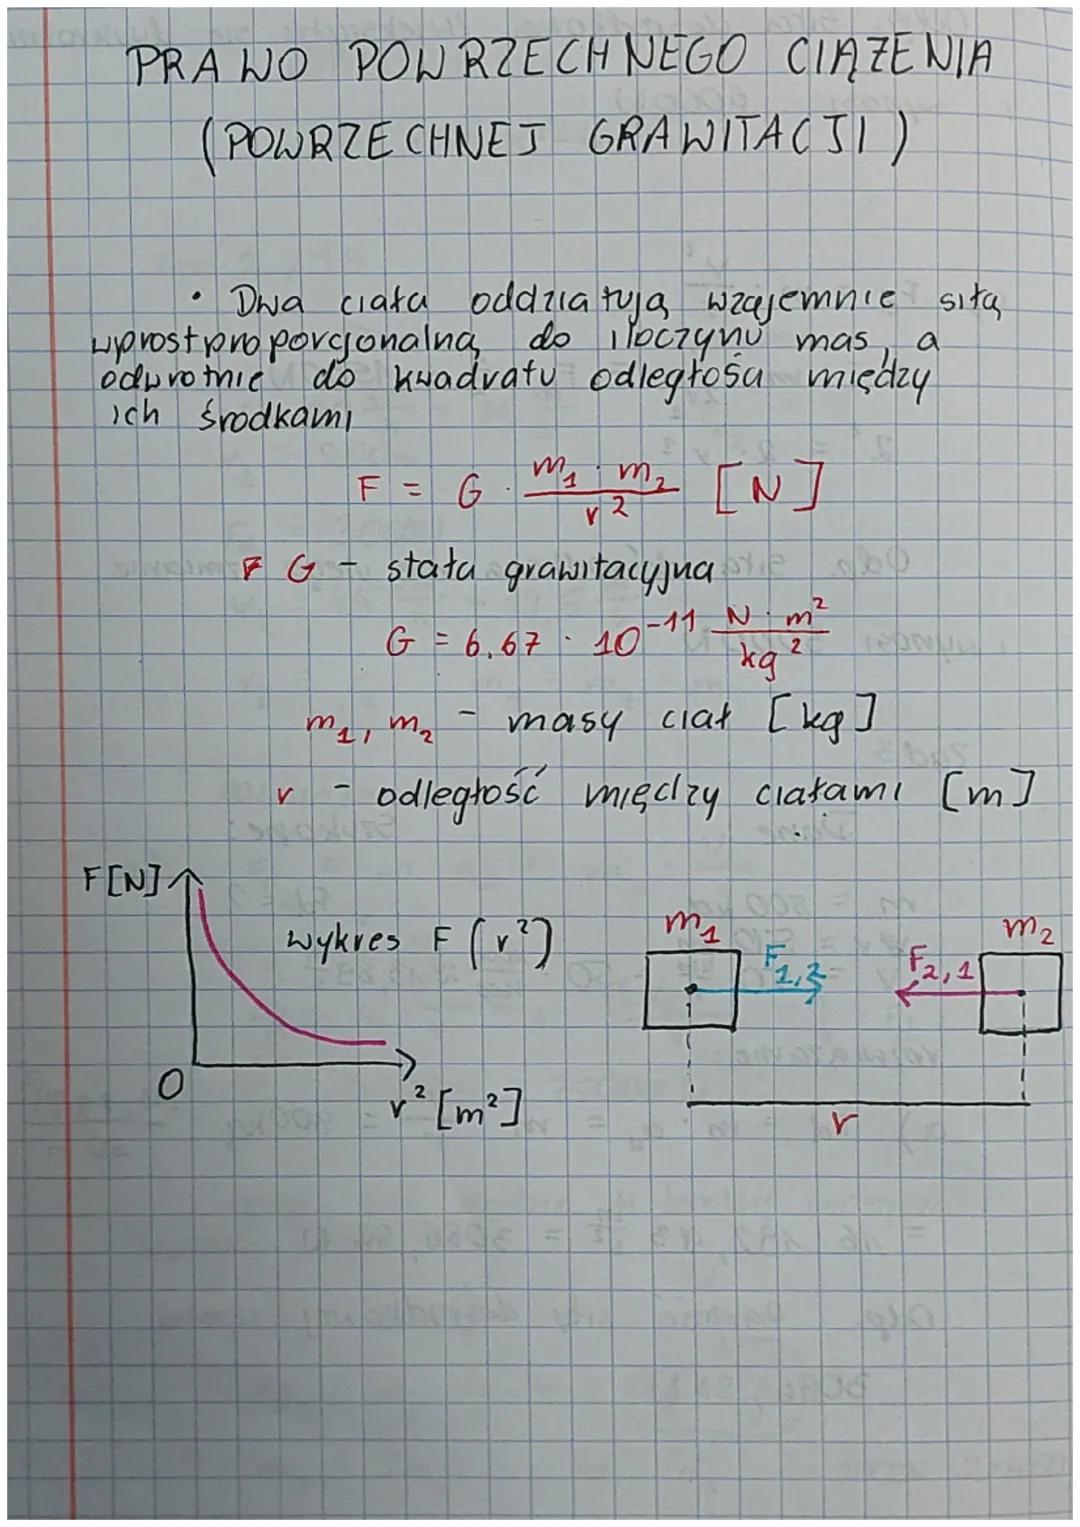 PRAWO POWRZECHNEGO CIĄŻENIA
(POWRZECHNEJ GRAWITACJI)
• Dwa ciała oddziałują wzajemnie siłą
wprostproporcjonalną do iloczynu mas, a
odwrotnie do kwadratu odległości między
ich środkami
F = G · m₁ · m₂ / r² [N]
G - stała grawitacyjna
G = 6,67 · 10⁻¹¹ N · m² / kg²
m₁, m₂ - masy ciał [kg]
r - odległość między ciałami [m]
F[N]
wykres F (r²)
0
r² [m²]
m₁
m₂
F₁,₂
F₂,₁
r